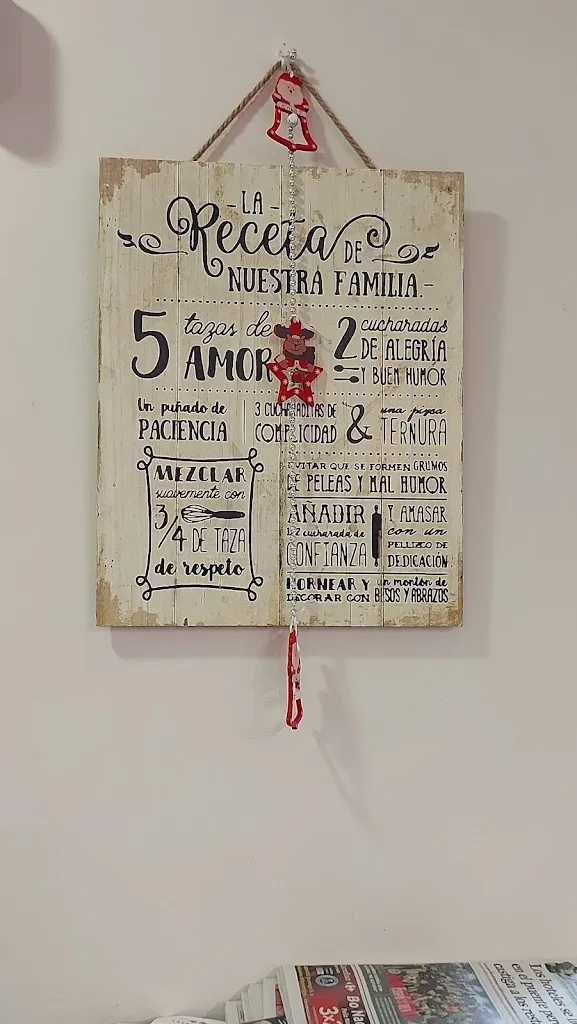 -LA-
Receta DE
NUESTRA FAMILIA.-
5 tazas de
AMOR
2 cucharadas
DE ALEGRÍA
Y BUEN HUMOR
Un puñado de
PACIENCIA
3 CUCHARADITAS DE
COMPLICIDAD
&
una pizca
TERNURA
MEZCLAR
suavemente con
3/4 DE TAZA
de respeto
EVITAR QUE SE FORMEN GRUMOS
DE PELEAS Y MAL HUMOR
AÑADIR
1/2 cucharada de
CONFIANZA
Y AMASAR
con un
PELLIZCO DE
DEDICACIÓN
HORNEAR Y un montón de
DECORAR CON BESOS Y ABRAZOS
Los hoteles se
en el puente per
castiga a los rest
Bo
Na
3x